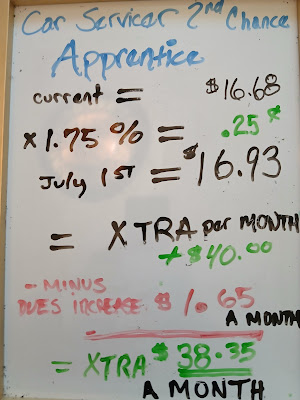 Car Servicer 2nd Chance
Apprentice
current = $16.68
x 1.75 % = .25 ¢
July 1ST = $16.93
= XTRA per MONTH
+ $40.00
- MINUS
DUES INCREASE $1.65
A MONTH
= XTRA $38.35
A MONTH